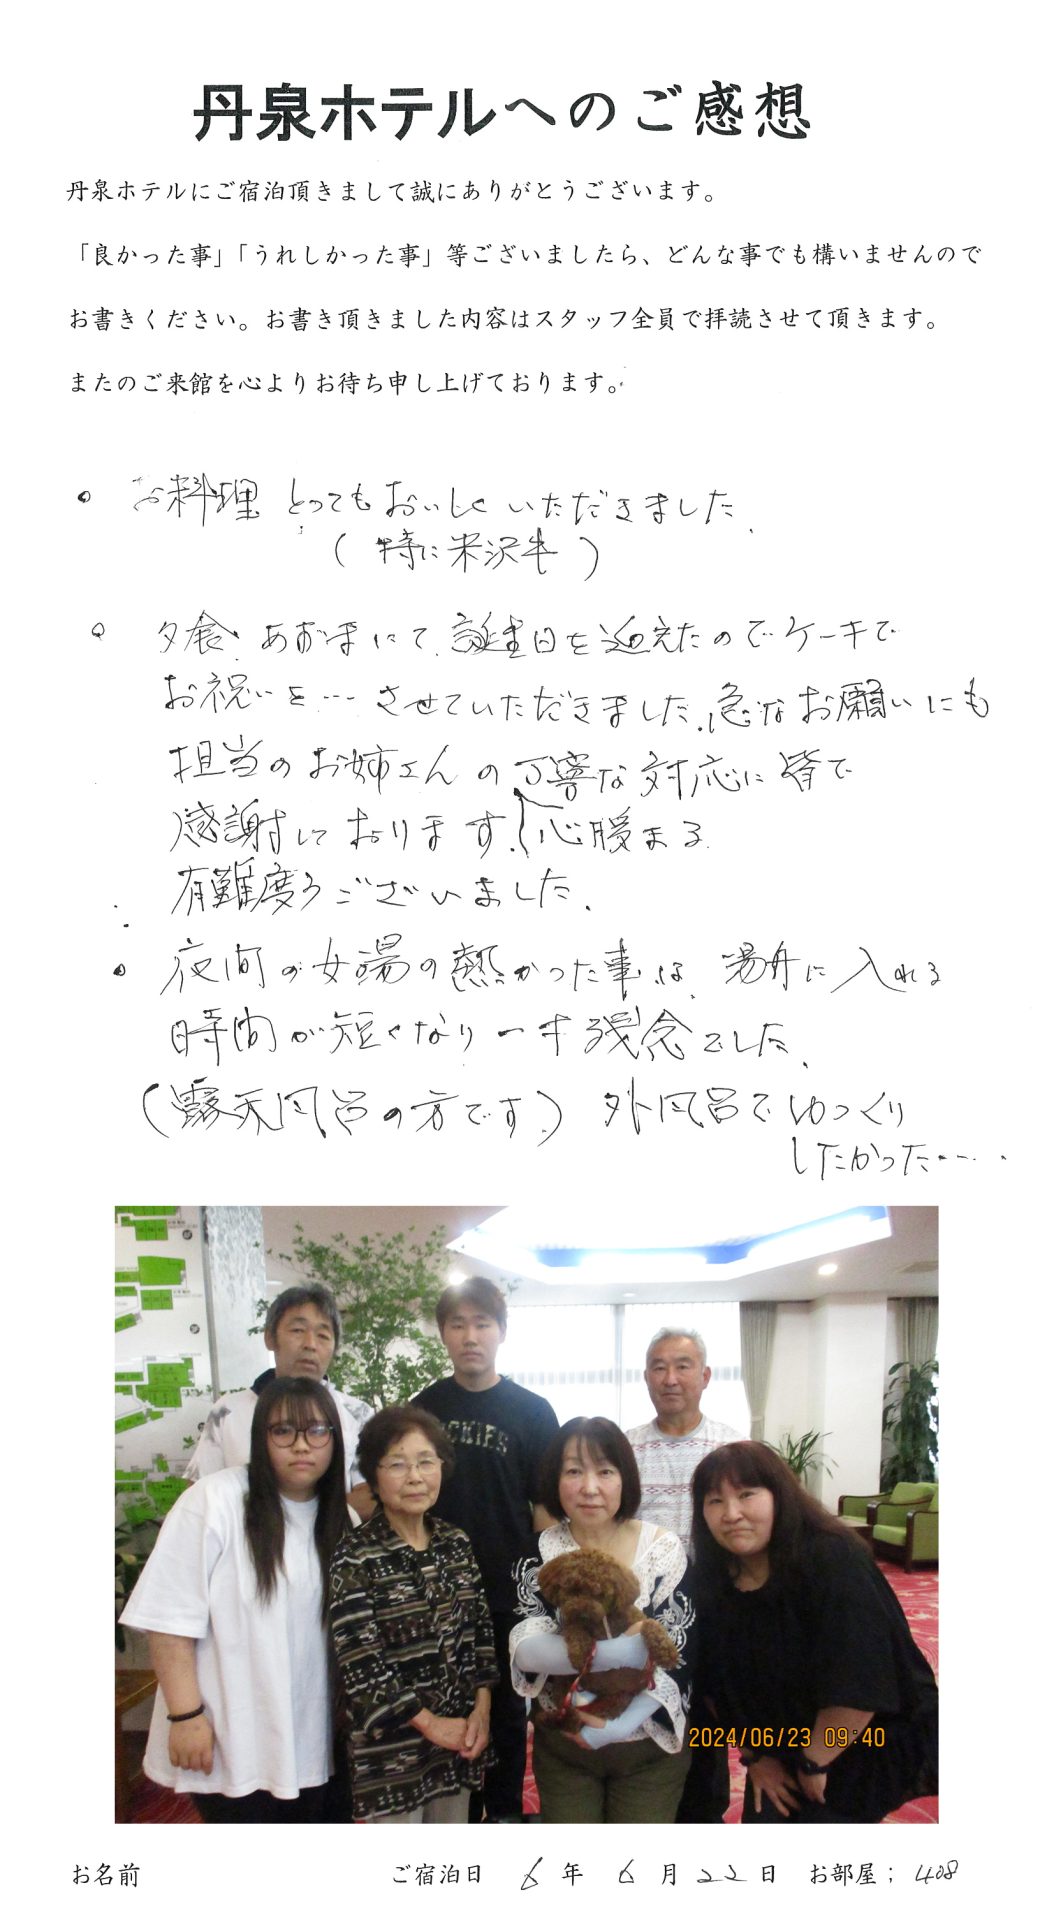 丹泉ホテルへのご感想
丹泉ホテルにご宿泊頂きまして誠にありがとうございます。
「良かった事」「うれしかった事」等ございましたら、どんな事でも構いませんので
お書きください。お書き頂きました内容はスタッフ全員で拝読させて頂きます。
またのご来館を心よりお待ち申し上げております。
• お料理 とってもおいしくいただきました.
(特に米沢牛)
• 夕食、あおまにて、誕生日を迎えたのでケーキで
お祝いを…させていただきました、急なお願いにも
担当のお姉さんの丁寧な対応に皆で
感謝しております。心暖まる
有難度うございました.
• 夜間の女湯の熱かった事は、湯舟に入れる
時間が短くなり一寸残念でした.
(露天風呂の方です.) 外風呂でゆっくり
したかった……
DICKIES
2024/06/23 09:40
お名前 ご宿泊日 6年 6月 22日 お部屋; 408